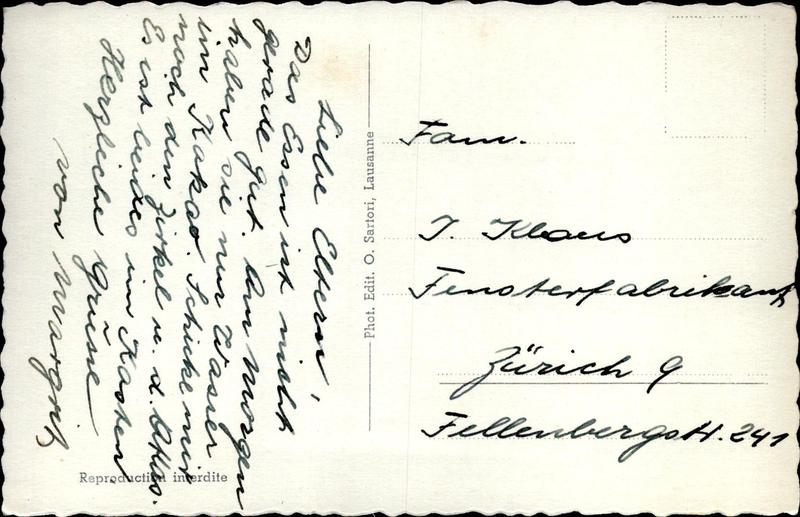 Liebe Eltern,
Das Essen ist nicht
gerade gut. Am Morgen
haben sie nur Wasser
im Kakao. Schicke mir
noch den Zirkel u. d. Atlas.
Es ist beides im Kasten
Herzliche Grüsse
von Margrit
Reproduction interdite
Phot. Edit. O. Sartori, Lausanne
Fam.
J. Klaus
Fensterfabrikant
Zürich 9
Fellenbergstr. 241